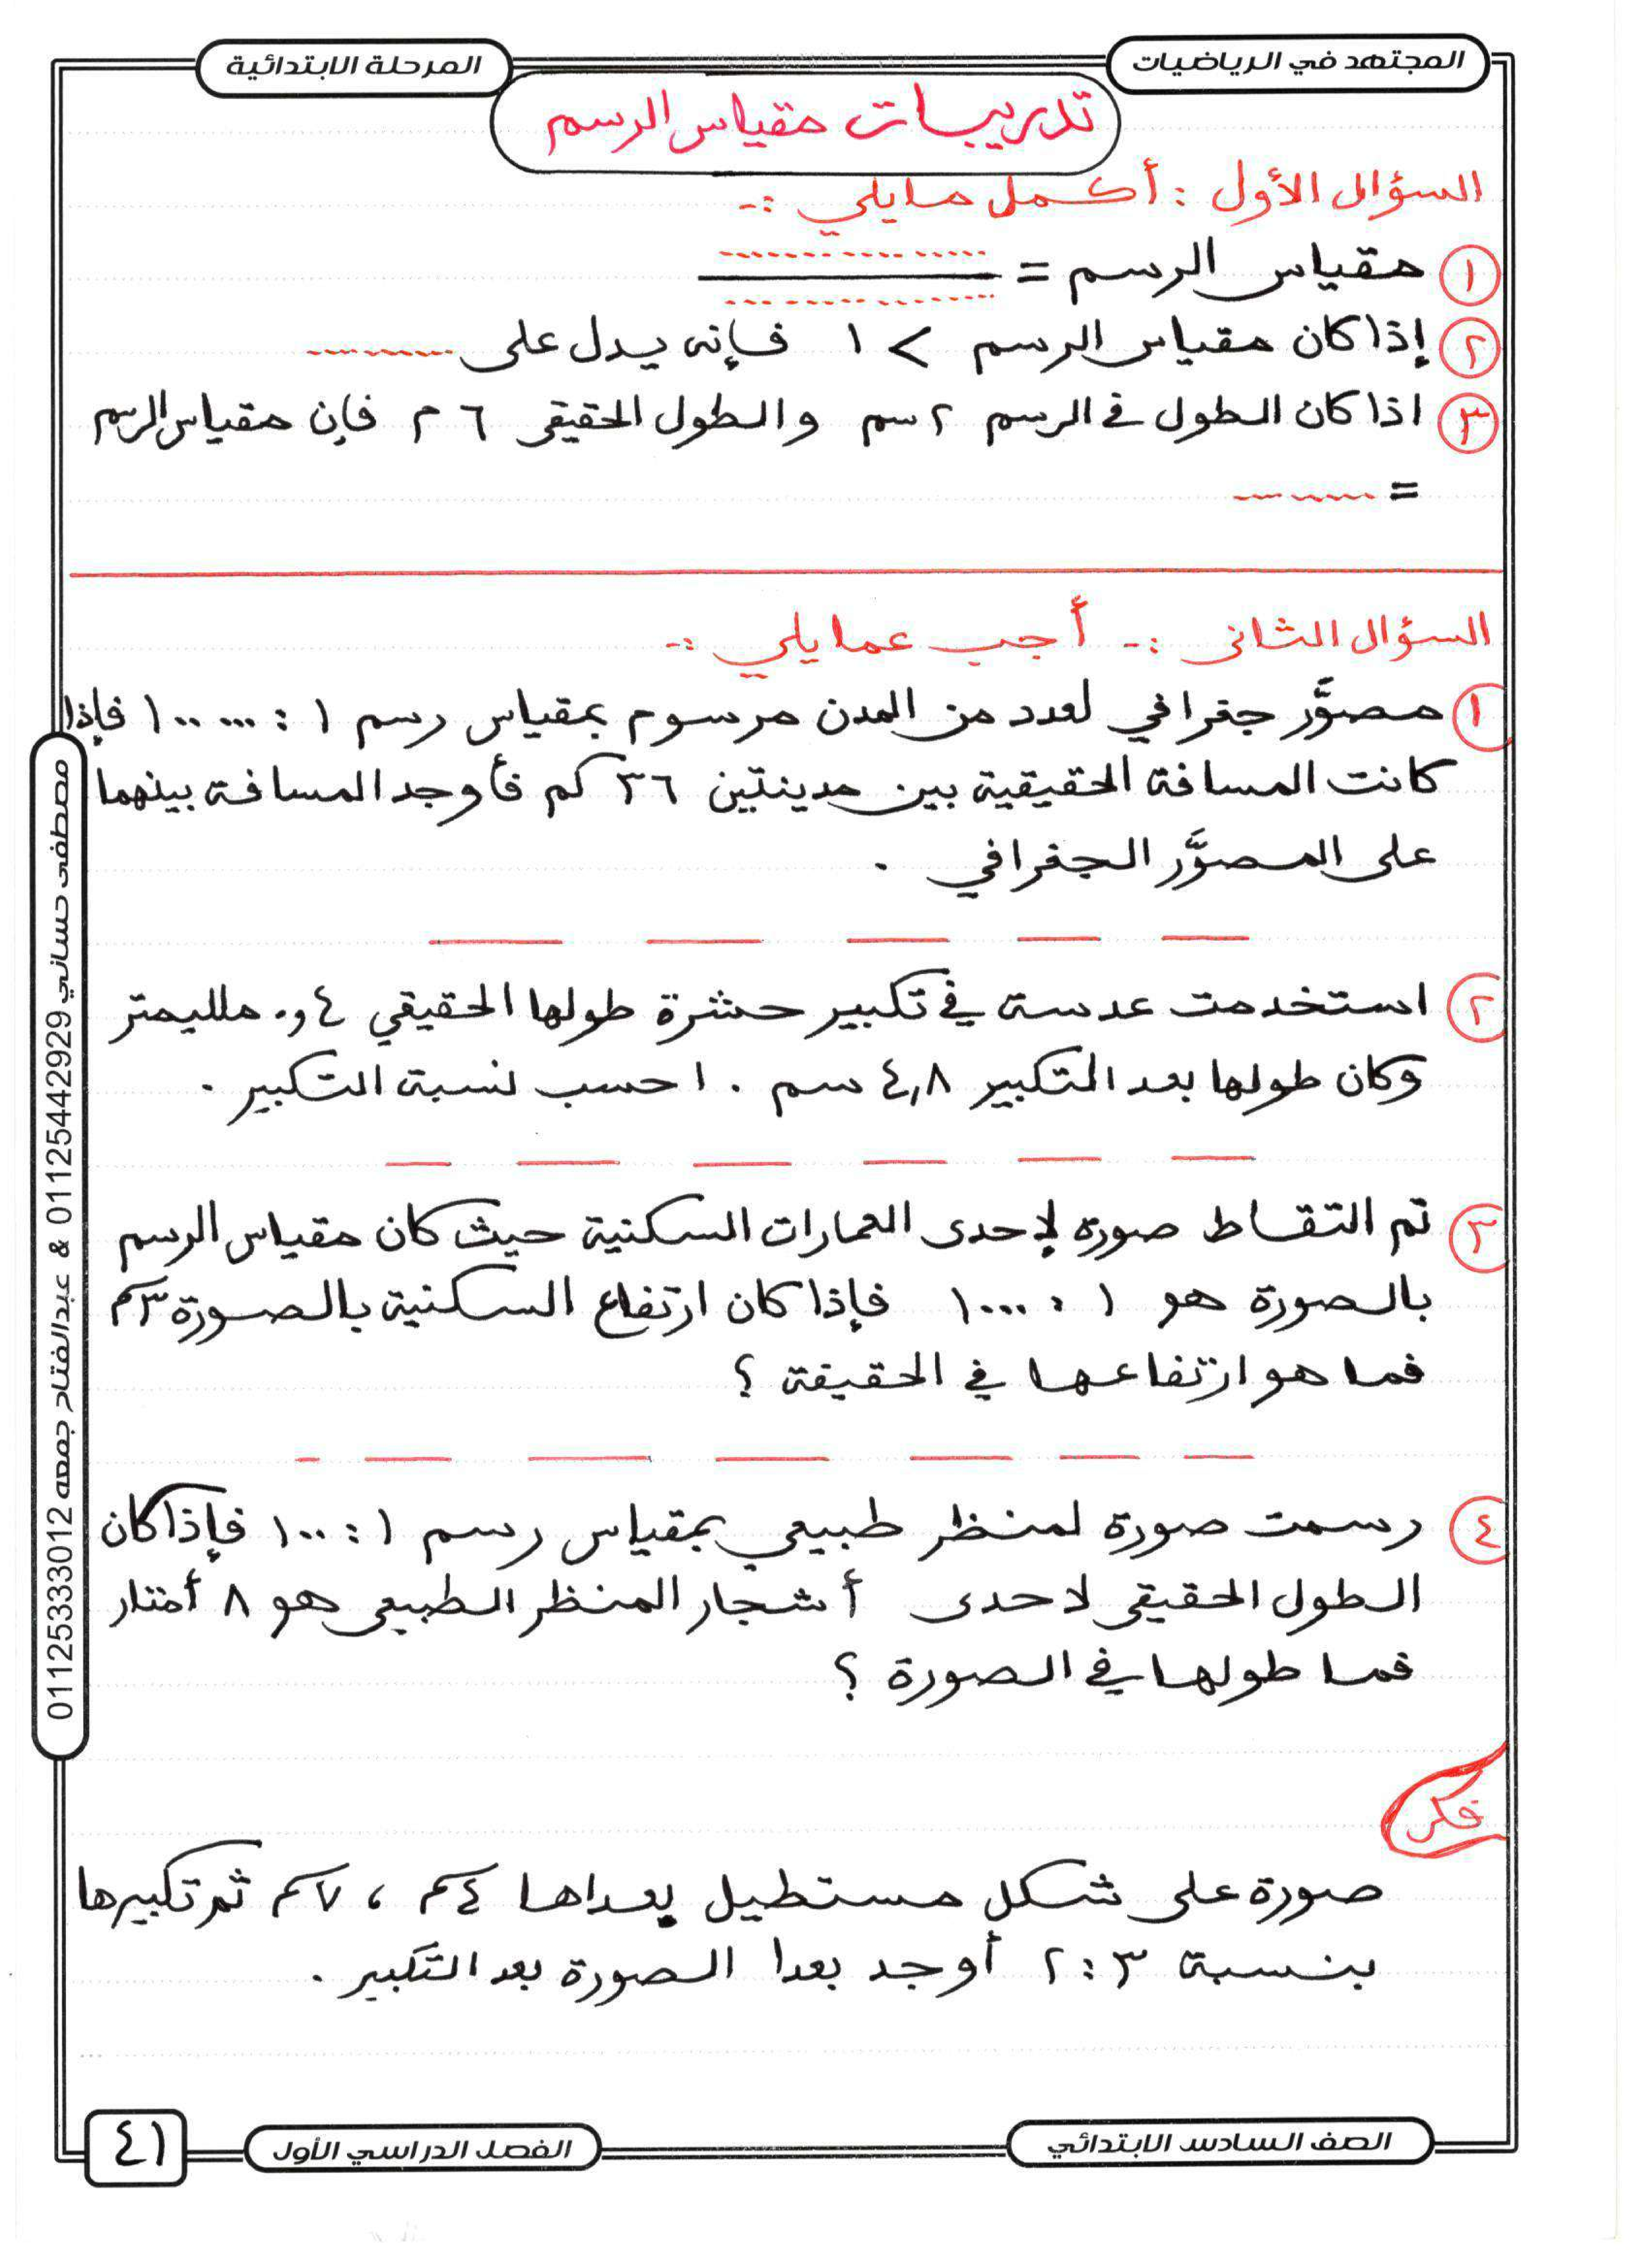 المجتهد في الرياضيات
المرحلة الابتدائية
تدريبات مقياس الرسم
السؤال الأول : أكمل مايلي :-
١ مقياس الرسم = ............ / ............
٢ إذا كان مقياس الرسم > ١ فإنه يدل على ............
٣ اذا كان الطول في الرسم ٢ سم والطول الحقيقى ٦ م فإن مقياس الرسم
= ............
السؤال الثانى :- أجب عمايلي :-
١ مصوَّر جغرافي لعدد من المدن مرسوم بمقياس رسم ١ : ١٠٠٠٠٠ فإذا
كانت المسافة الحقيقية بين مدينتين ٣٦ كم فأوجد المسافة بينهما
على المصوَّر الجغرافي .
٢ استخدمت عدسة في تكبير حشرة طولها الحقيقي ٤و٠ ملليمتر
وكان طولها بعد التكبير ٤,٨ سم . احسب نسبة التكبير .
٣ تم التقاط صورة لإحدى العمارات السكنية حيث كان مقياس الرسم
بالصورة هو ١ : ١٠٠٠ فإذا كان ارتفاع السكنية بالصورة ٣سم
فما هو ارتفاعها في الحقيقة ؟
٤ رسمت صورة لمنظر طبيعي بمقياس رسم ١ : ١٠٠ فإذا كان
الطول الحقيقى لاحدى أشجار المنظر الطبيعى هو ٨ أمتار
فما طولها في الصورة ؟
فكر
صورة على شكل مستطيل بعداها ٤سم ، ٧سم تم تكبيرها
بنسبة ٣ : ٢ أوجد بعدا الصورة بعد التكبير .
مصطفى حساني 01125442929 & عبدالفتاح جمعه 01125333012
الصف السادس الابتدائي
الفصل الدراسي الأول
٤١